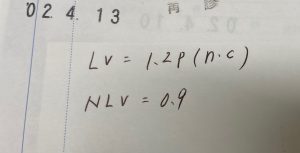 02.4.13 再診
LV = 1.2p (n.c)
NLV = 0.9